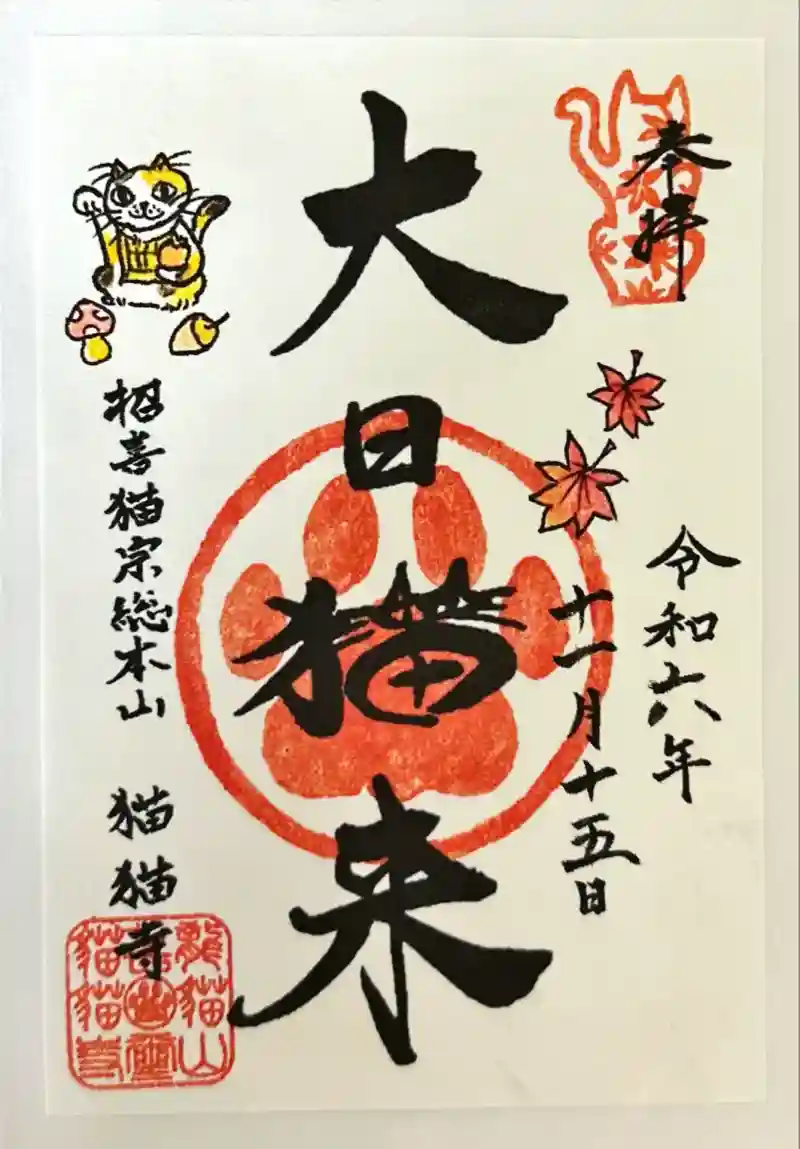 奉拝
令和六年
十一月十五日
大日猫来
招喜猫宗総本山 猫猫寺
龍猫山
猫猫寺